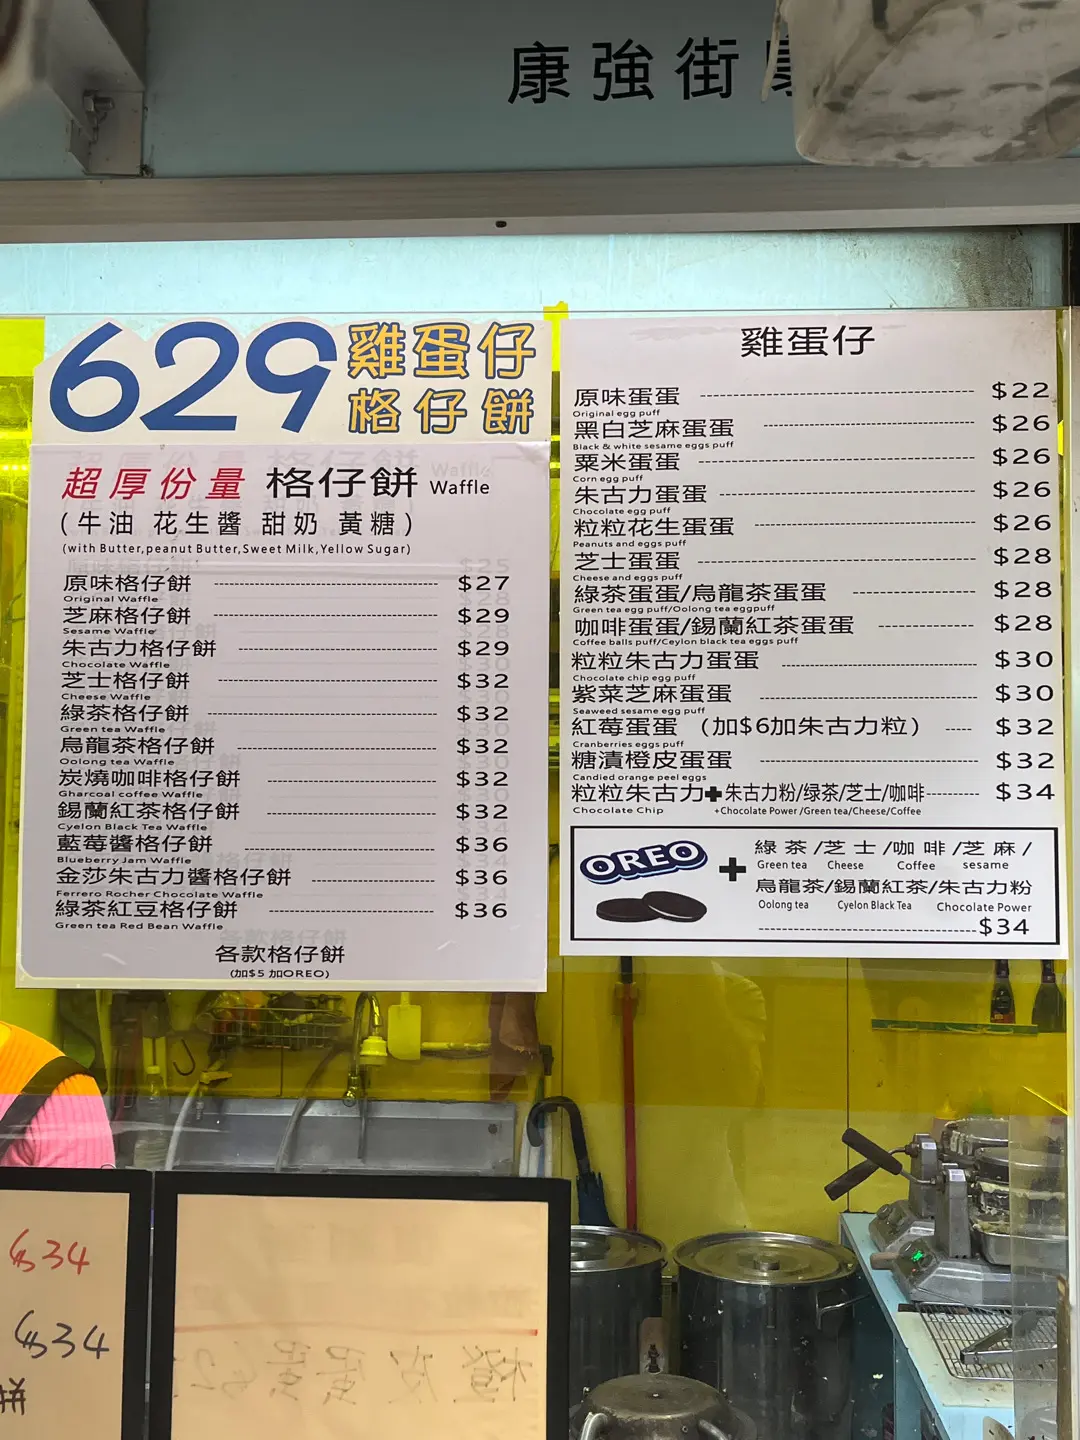 康強街
629 雞蛋仔
格仔餅
超厚份量 格仔餅 Waffle
(牛油 花生醬 甜奶 黃糖)
(with Butter,peanut Butter,Sweet Milk,Yellow Sugar)
原味格仔餅 $27
Original Waffle
芝麻格仔餅 $29
Sesame Waffle
朱古力格仔餅 $29
Chocolate Waffle
芝士格仔餅 $32
Cheese Waffle
綠茶格仔餅 $32
Green tea Waffle
烏龍茶格仔餅 $32
Oolong tea Waffle
炭燒咖啡格仔餅 $32
Gharcoal coffee Waffle
錫蘭紅茶格仔餅 $32
Cyelon Black Tea Waffle
藍莓醬格仔餅 $36
Blueberry Jam Waffle
金莎朱古力醬格仔餅 $36
Ferrero Rocher Chocolate Waffle
綠茶紅豆格仔餅 $36
Green tea Red Bean Waffle
各款格仔餅
(加$5 加OREO)
雞蛋仔
原味蛋蛋 $22
Original egg puff
黑白芝麻蛋蛋 $26
Black & white sesame eggs puff
粟米蛋蛋 $26
Corn egg puff
朱古力蛋蛋 $26
Chocolate egg puff
粒粒花生蛋蛋 $26
Peanuts and eggs puff
芝士蛋蛋 $28
Cheese and eggs puff
綠茶蛋蛋/烏龍茶蛋蛋 $28
Green tea egg puff/Oolong tea eggpuff
咖啡蛋蛋/錫蘭紅茶蛋蛋 $28
Coffee balls puff/Ceylon black tea eggs puff
粒粒朱古力蛋蛋 $30
Chocolate chip egg puff
紫菜芝麻蛋蛋 $30
Seaweed sesame egg puff
紅莓蛋蛋 (加$6加朱古力粒) $32
Cranberries eggs puff
糖漬橙皮蛋蛋 $32
Candied orange peel eggs
粒粒朱古力+朱古力粉/绿茶/芝士/咖啡 $34
Chocolate Chip +Chocolate Power /Green tea/Cheese/Coffee
OREO + 綠茶/芝士/咖啡/芝麻/
Green tea Cheese Coffee sesame
烏龍茶/錫蘭紅茶/朱古力粉
Oolong tea Cyelon Black Tea Chocolate Power
$34
$34
$34